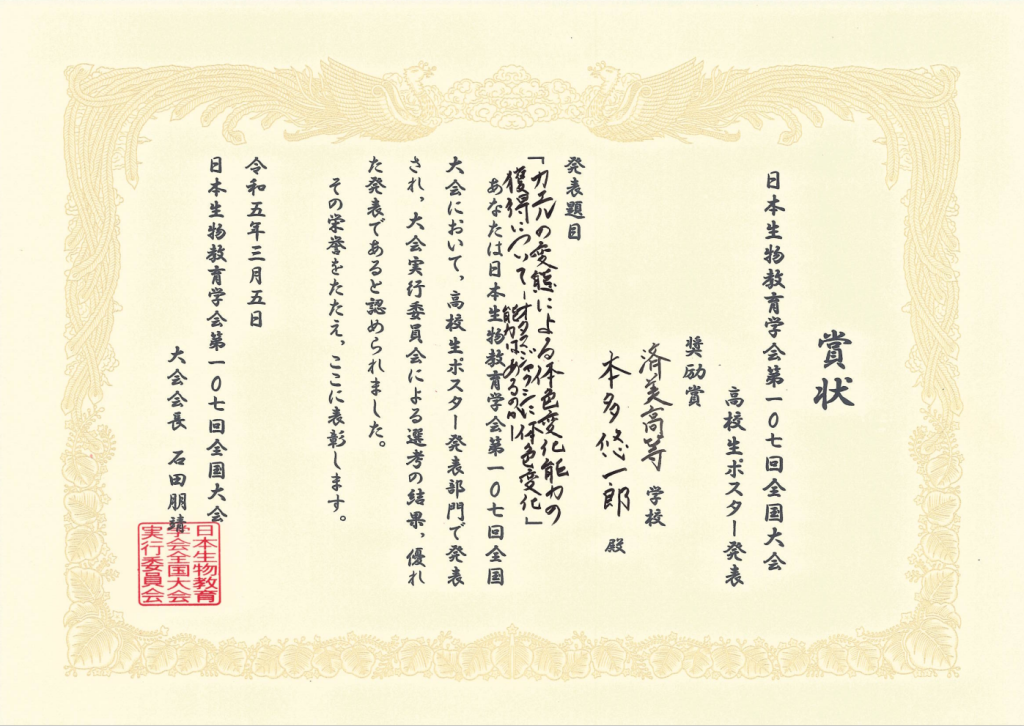 賞状
日本生物教育学会第一〇七回全国大会
高校生ポスター発表
奨励賞
済美高等学校
本多悠一郎 殿
発表題目
「カエルの変態による体色変化能力の
獲得について-オタマジャクシに体色変化
能力はあるのか-」
あなたは日本生物教育学会第一〇七回全国
大会において、高校生ポスター発表部門で発表
され、大会実行委員会による選考の結果、優れ
た発表であると認められました。
その栄誉をたたえ、ここに表彰します。
令和五年三月五日
日本生物教育学会第一〇七回全国大会
大会会長 石田朋靖
日本生物教育
学会全国大会
実行委員会